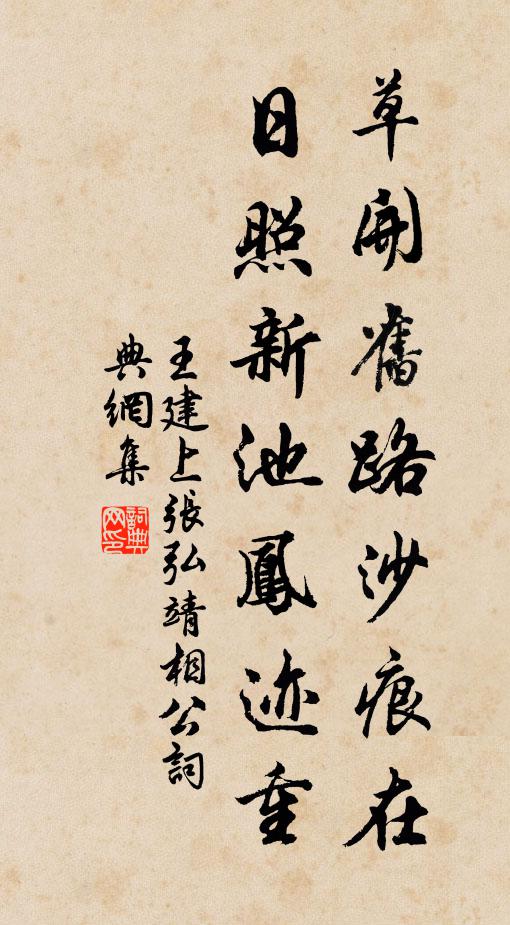 草開舊路沙痕在
日照新池鳳迹重
王建上張弘靖相公詞
典網集
詞典網印